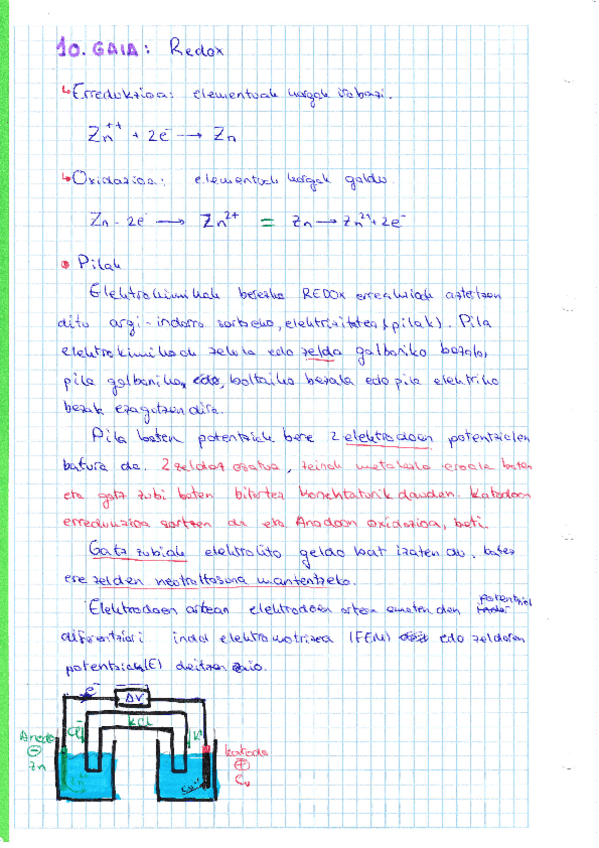 10. GAIA: Redox
Erredukzioa: elementuak kargak irabazi.
Zn⁺⁺ + 2e⁻ → Zn
Oxidazioa: elementuak kargak galdu.
Zn - 2e⁻ → Zn²⁺ = Zn → Zn²⁺ + 2e⁻
Pilak
Elektrokimikak berezko REDOX erreakzioak aztertzen
ditu argi-indarra sortzeko, elektrizitatea (pilak). Pila
elektrokimikoak zelula edo zelda galbaniko bezala,
pila galbaniko, edo, boltaiko bezala edo pila elektriko
bezak ezagutzen dira.
Pila baten potentziak bere 2 elektrodoen potentzialen
batura da. 2 zeldaz osatua, zeinak metalezko eroale baten
eta gatz zubi baten bitartez konektaturik dauden. Katodoan
erredukzioa sortzen da eta Anodoan oxidazioa, beti.
Gatz zubiak elektrolito geldo bat izaten du, batez
ere zelden neutraltasuna mantentzeko.
Elektrodoen artean elektrodoen artean ematen den potentzial
diferentziari indar elektromotrizea (FEM) edo zeldaren
potentziala (E) deitzen zaio.
e⁻ ΔV
KCl
Cl⁻ K⁺
Anodo Katodo
⊖ ⊕
Zn Cu